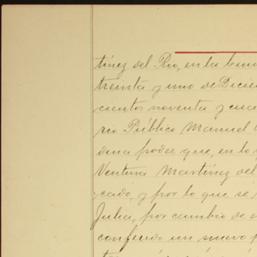 tínez del Rio, en la
treinta y uno de Dicie
cientos noventa y
rio Público Manuel
dina poder que, en lo
Ventura Martínez del
cado, y por lo que se
Julia, por cambio de
confirido un nuevo